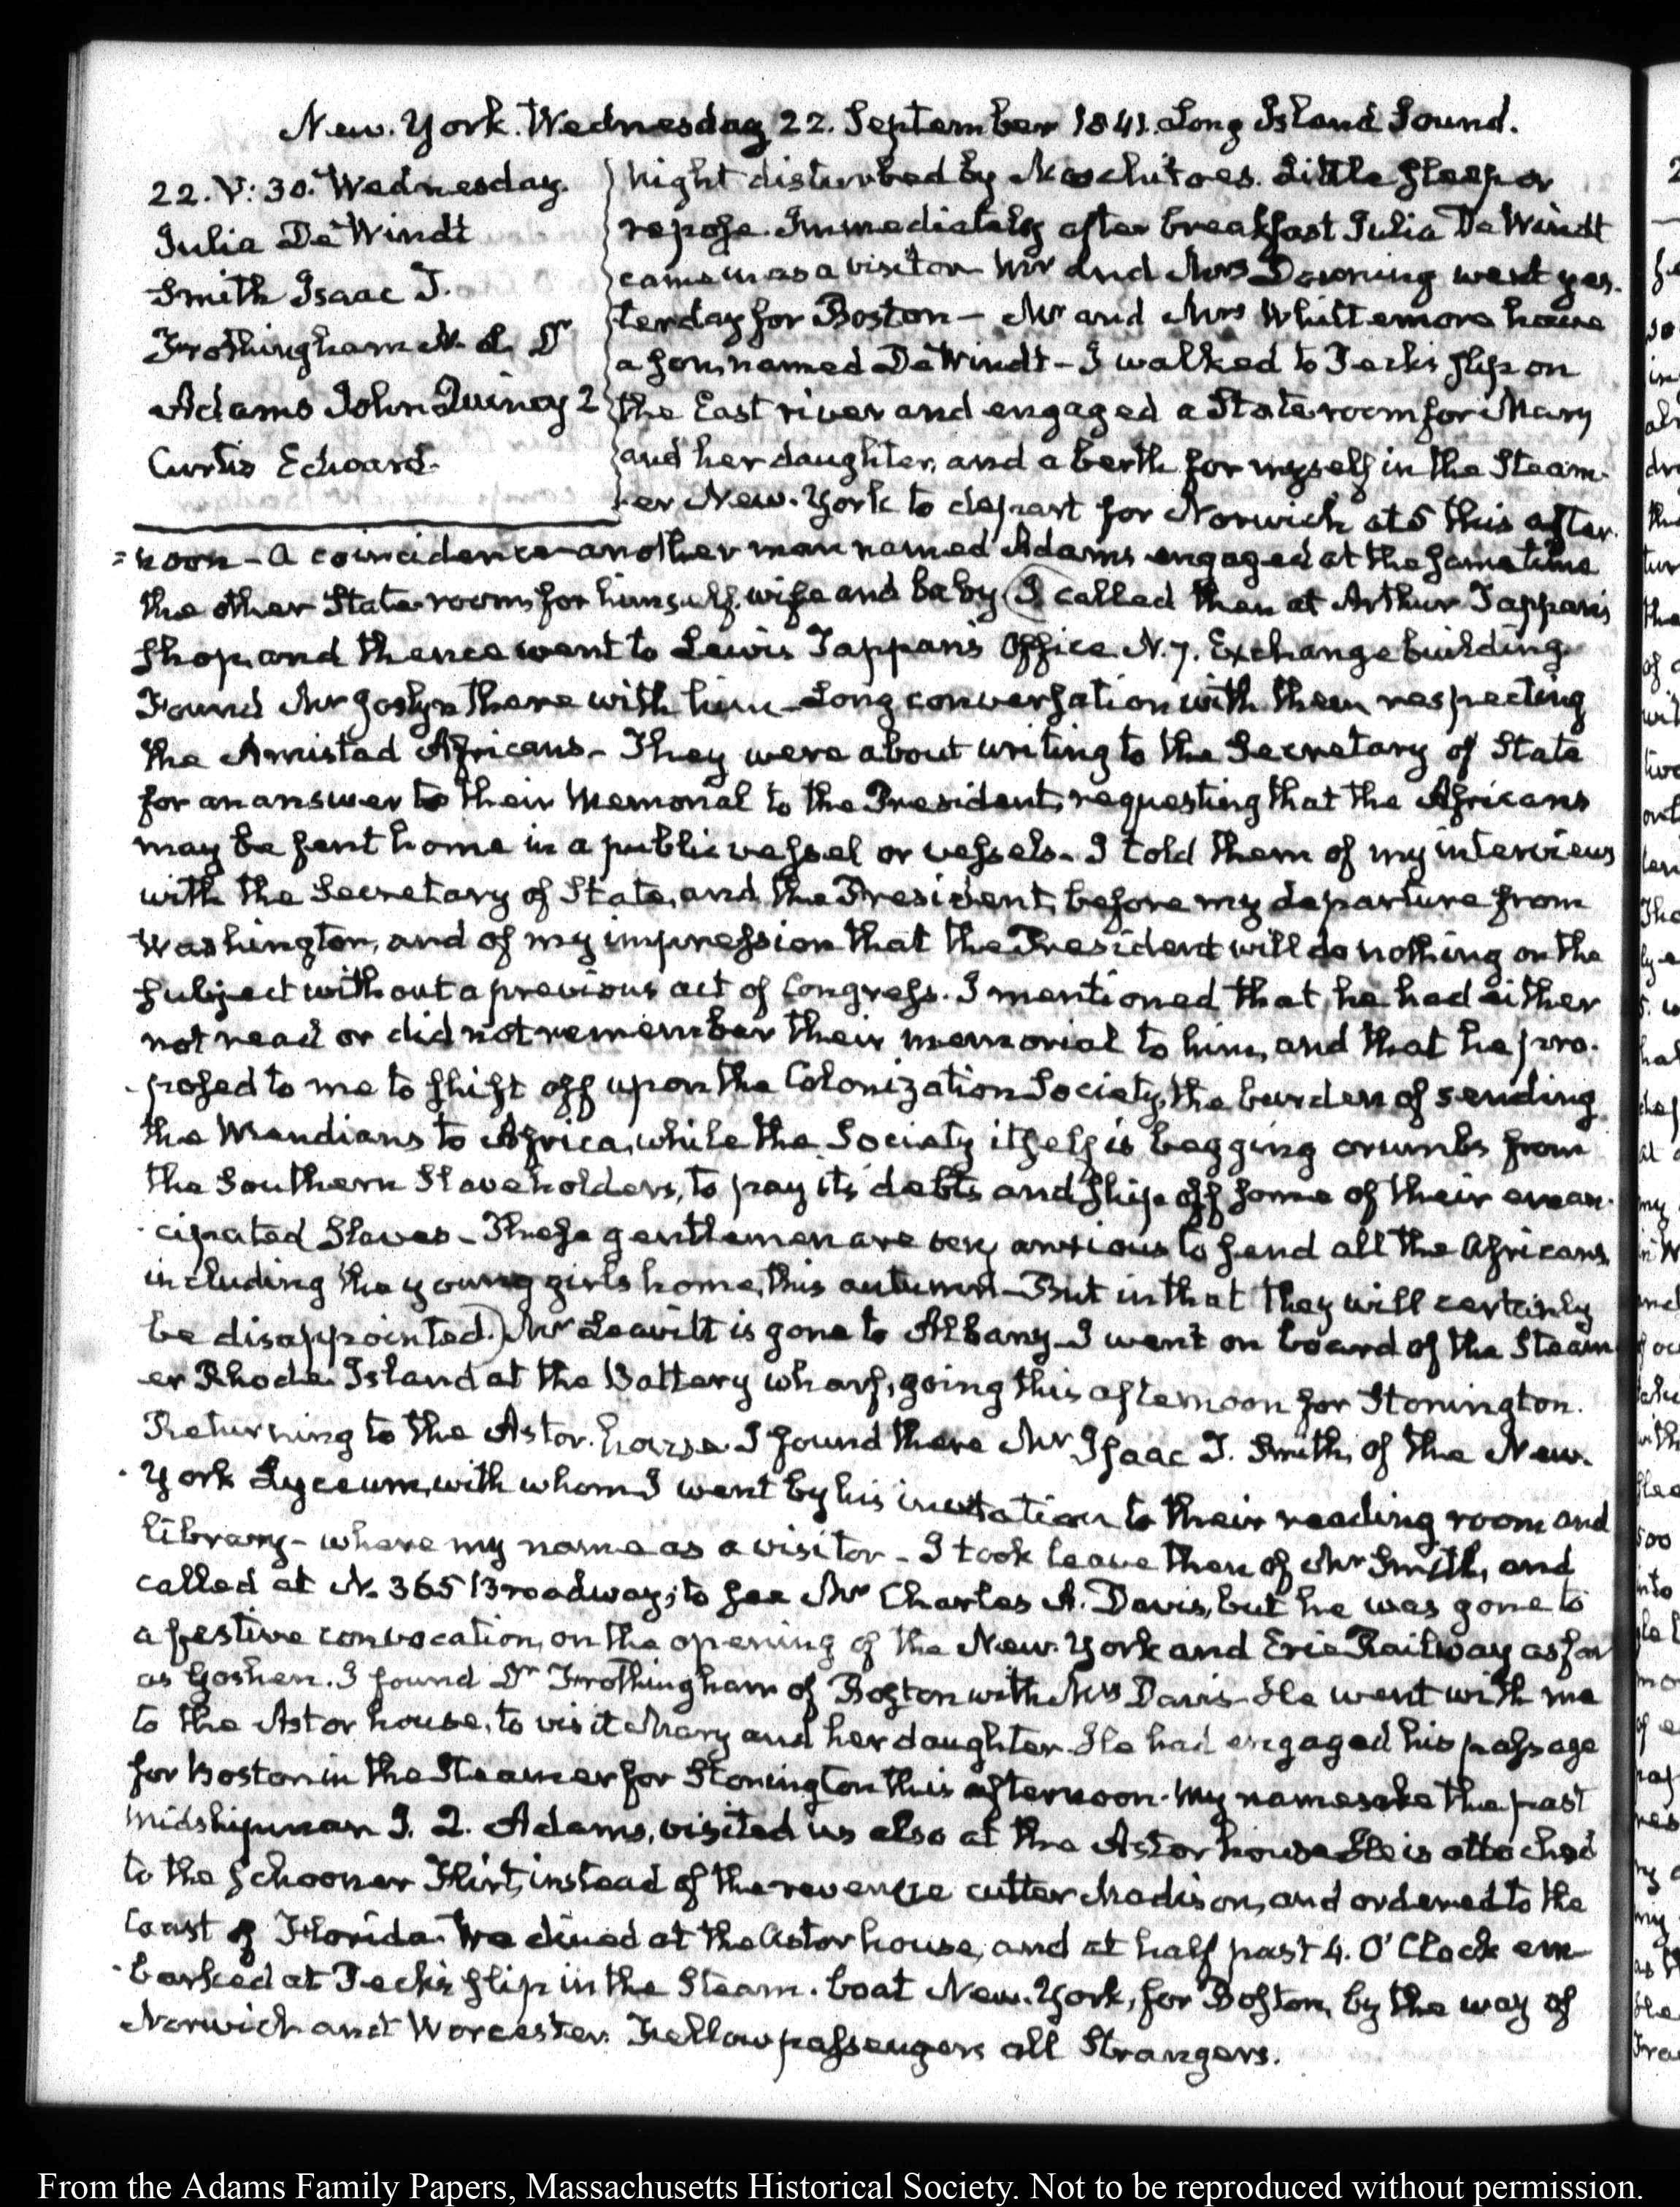 New-York. Wednesday 22. September 1841. Long Island Sound.
22. V: 30. Wednesday.
Julia De Windt
Smith Isaac T.
Frothingham N. L. Dr
Adams John Quincy 2
Curtis Edward.
Night disturbed by Moschitoes. Little sleep or
repose. Immediately after breakfast Julia De Windt
came in as a visitor Mr and Mrs Downing went yes-
terday for Boston — Mr and Mrs Whittemore have
a son, named De Windt — I walked to Peck's slip on
the East river and engaged a State room for Mary
and her daughter, and a berth for myself in the Steam-
-er New-York to depart for Norwich at 5 this after-
=noon — a coincidence another man named Adams engaged at the same time
the other State room, for himself, wife and baby (I called then at Arthur Tappan's
shop, and thence went to Lewis Tappan's Office N. 7. Exchange building
Found Mr Joslyn there with him — Long conversation with them respecting
the Amistad Africans — They were about writing to the Secretary of State
for an answer to their Memorial to the President, requesting that the Africans
may be sent home in a public vessel or vessels — I told them of my interviews
with the Secretary of State, and the President, before my departure from
Washington, and of my impression that the President will do nothing on the
subject without a previous act of Congress. I mentioned that he had either
not read or did not remember their memorial to him, and that he pro-
-posed to me to shift off upon the Colonization Society, the burden of sending
the Mendians to Africa, while the Society itself is begging crumbs from
the Southern Slaveholders, to pay its debts and ship off some of their eman-
-cipated Slaves — These gentlemen are very anxious to send all the Africans,
including the young girls home, this autumn — But in that they will certainly
be disappointed.) Mr Leavitt is gone to Albany — I went on board of the Steam
-er Rhode Island at the Battery wharf, going this afternoon for Stonington.
Returning to the Astor-house I found there Mr Isaac T. Smith, of the New-
-York Lyceum, with whom I went by his invitation to their reading room and
library — where my name as a visitor — I took leave then of Mr Smith, and
called at N. 365 Broadway; to see Mr Charles A. Davis, but he was gone to
a festive convocation, on the opening of the New-York and Erie Railway as far
as Goshen. I found Dr Frothingham of Boston with Mrs Davis — He went with me
to the Astor house, to visit Mary and her daughter — He had engaged his passage
for Boston in the Steamer for Stonington this afternoon. My namesake the past
midshipman J. Q. Adams, visited us also at the Astor house He is attached
to the schooner Flirt, instead of the revenue cutter Madison, and ordered to the
Coast of Florida. We dined at the Astor house, and at half past 4. O'Clock em-
-barked at Peck's slip in the Steam-boat New-York, for Boston, by the way of
Norwich and Worcester. Fellow passengers all Strangers.
From the Adams Family Papers, Massachusetts Historical Society. Not to be reproduced without permission.